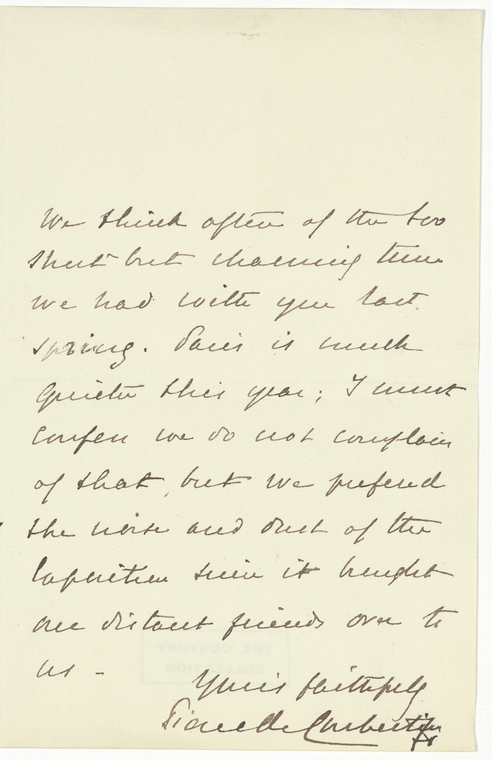 We think often of the too
short but charming time
we had with you last
spring. Paris is much
quieter this year; I must
confess we do not complain
of that, but we prefered
the noise and dust of the
Exposition since it brought
our distant friends over to
us -
Yours faithfully
Pierre de Coubertin
THE CENTURY
COLLECTION